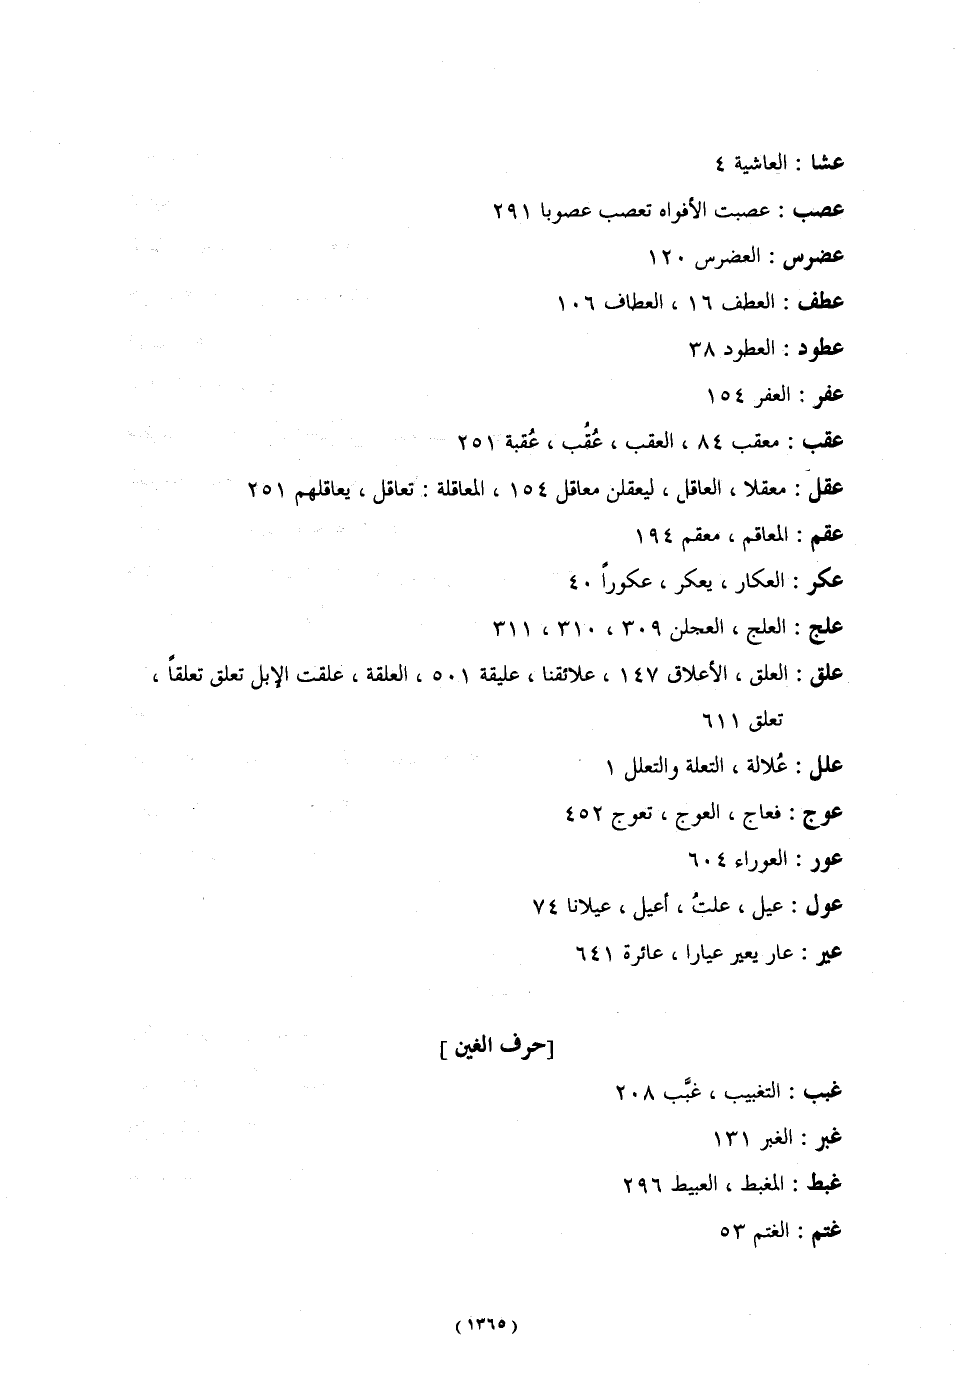 عشا : العاشية ٤
عصب : عصبت الأفواه تعصب عصوبا ٢٩١
عضرس : العضرس ١٢٠
عطف : العطف ١٦ ، العطاف ١٠٦
عطود : العطود ٣٨
عفر : العفر ١٥٤
عقب : معقب ٨٤ ، العقب ، عُقُب ، عُقبة ٢٥١
عقل : معقلا ، العاقل ، ليعقلن معاقل ١٥٤ ، المعاقلة : تعاقل ، يعاقلهم ٢٥١
عقم : المعاقم ، معقم ١٩٤
عكر : العكار ، يعكر ، عكوراً ٤٠
علج : العلج ، العجلن ٣٠٩ ، ٣١٠ ، ٣١١
علق : العلق ، الأعلاق ١٤٧ ، علائقنا ، عليقة ٥٠١ ، العلقة ، علقت الإبل تعلق تعلقاً ،
تعلق ٦١١
علل : عُلالة ، التعلة والتعلل ١
عوج : فعاج ، العوج ، تعوج ٤٥٢
عور : العوراء ٦٠٤
عول : عيل ، علتُ ، أعيل ، عيلانا ٧٤
عير : عار يعير عيارا ، عائرة ٦٤١
[حرف الغين ]
غبب : التغبيب ، غبَّب ٢٠٨
غبر : الغبر ١٣١
غبط : المغبط ، العبيط ٢٩٦
غتم : الغتم ٥٣
(١٣٦٥)